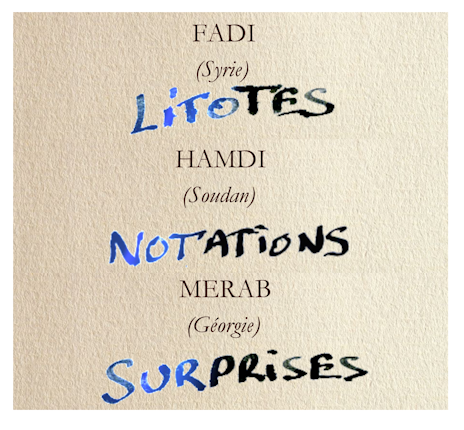 FADI
(Syrie)
LiTOTES
HAMDI
(Soudan)
NOTATiONS
MERAB
(Géorgie)
SURPRiSES